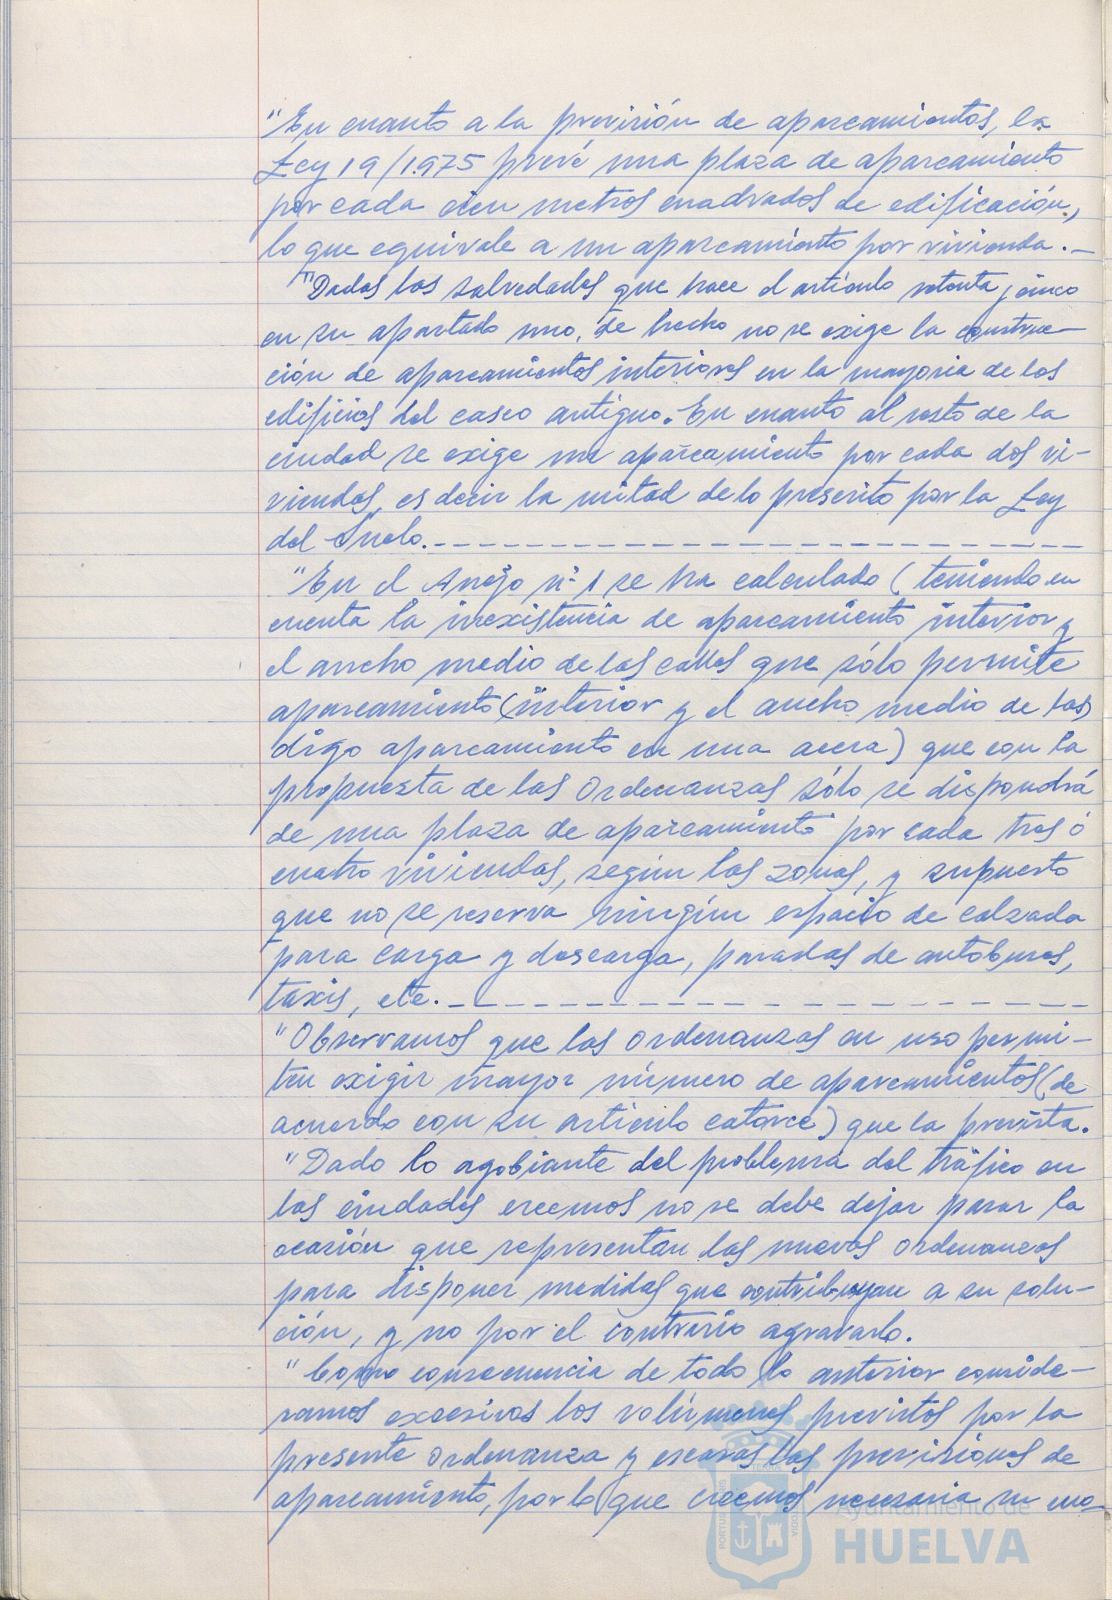 "En cuanto a la previsión de aparcamientos, la
Ley 19/1.975 prevé una plaza de aparcamiento
por cada cien metros cuadrados de edificación,
lo que equivale a un aparcamiento por vivienda.-
"Dadas las salvedades que hace el artículo setenta y cinco
en su apartado uno, de hecho no se exige la construc-
ción de aparcamientos interiores en la mayoria de los
edificios del casco antiguo. En cuanto al resto de la
ciudad se exige un aparcamiento por cada dos vi-
viendas, es decir la mitad de lo prescrito por la Ley
del Suelo.
"En el Anejo nº 1 se ha calculado (teniendo en
cuenta la inexistencia de aparcamiento interior y
el ancho medio de las calles que sólo permite
aparcamiento (interior y el ancho medio de las)
digo aparcamiento en una acera) que con la
propuesta de las Ordenanzas sólo se dispondrá
de una plaza de aparcamiento por cada tres ó
cuatro viviendas, según las zonas, y supuesto
que no se reserva ningún espacio de calzada
para carga y descarga, paradas de autobuses,
taxis, etc.
"Observamos que las Ordenanzas en uso permi-
ten exigir mayor número de aparcamientos (de
acuerdo con su artículo catorce) que la prevista.
"Dado lo agobiante del problema del tráfico en
las ciudades creemos no se debe dejar pasar la
ocasión que representan las nuevas Ordenanzas
para disponer medidas que contribuyan a su solu-
ción, y no por el contrario agravarlo.
"Como consecuencia de todo lo anterior conside-
ramos excesivos los volúmenes previstos por la
presente ordenanza y escasas las previsiones de
aparcamiento, por lo que creemos necesaria su mo-
Ayuntamiento de
HUELVA